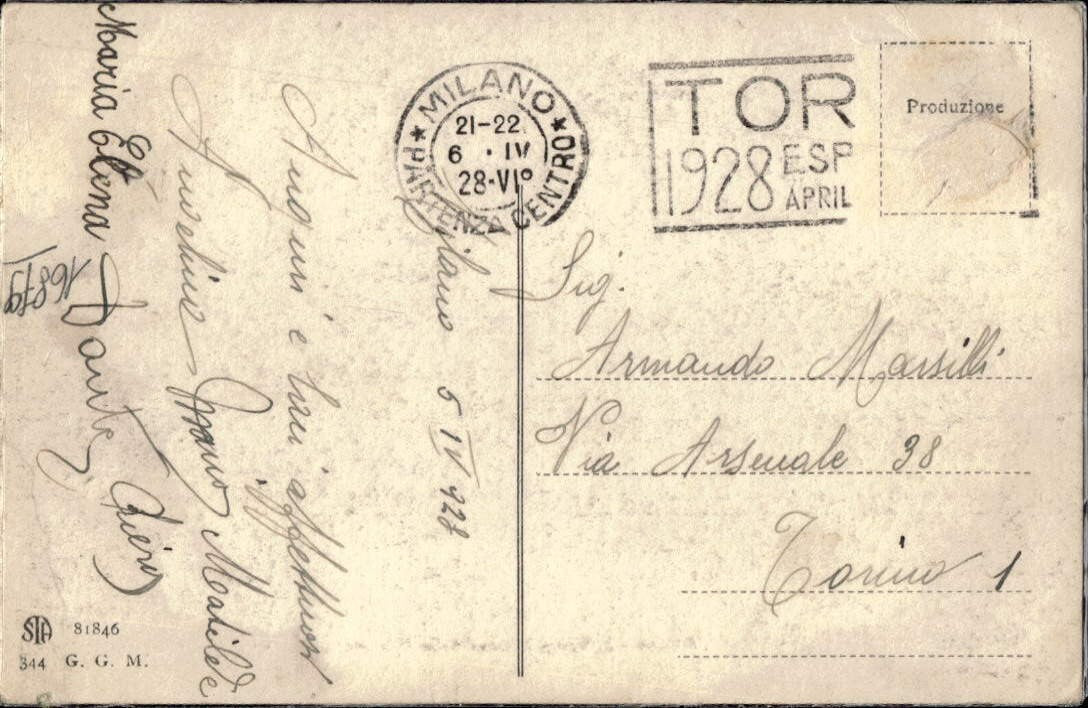 Milano 5 IV 928
Auguri e baci affettuosi
Angelino Mario Matilde
Maria Elena Dante, Piero
16879
STA 81846
344 G. G. M.
MILANO
21-22
6 · IV
28·VIº
PARTENZA CENTRO
TOR
1928 ESP
APRIL
Produzione
Sig.
Armando Marsilli
Via Arsenale 38
Torino 1